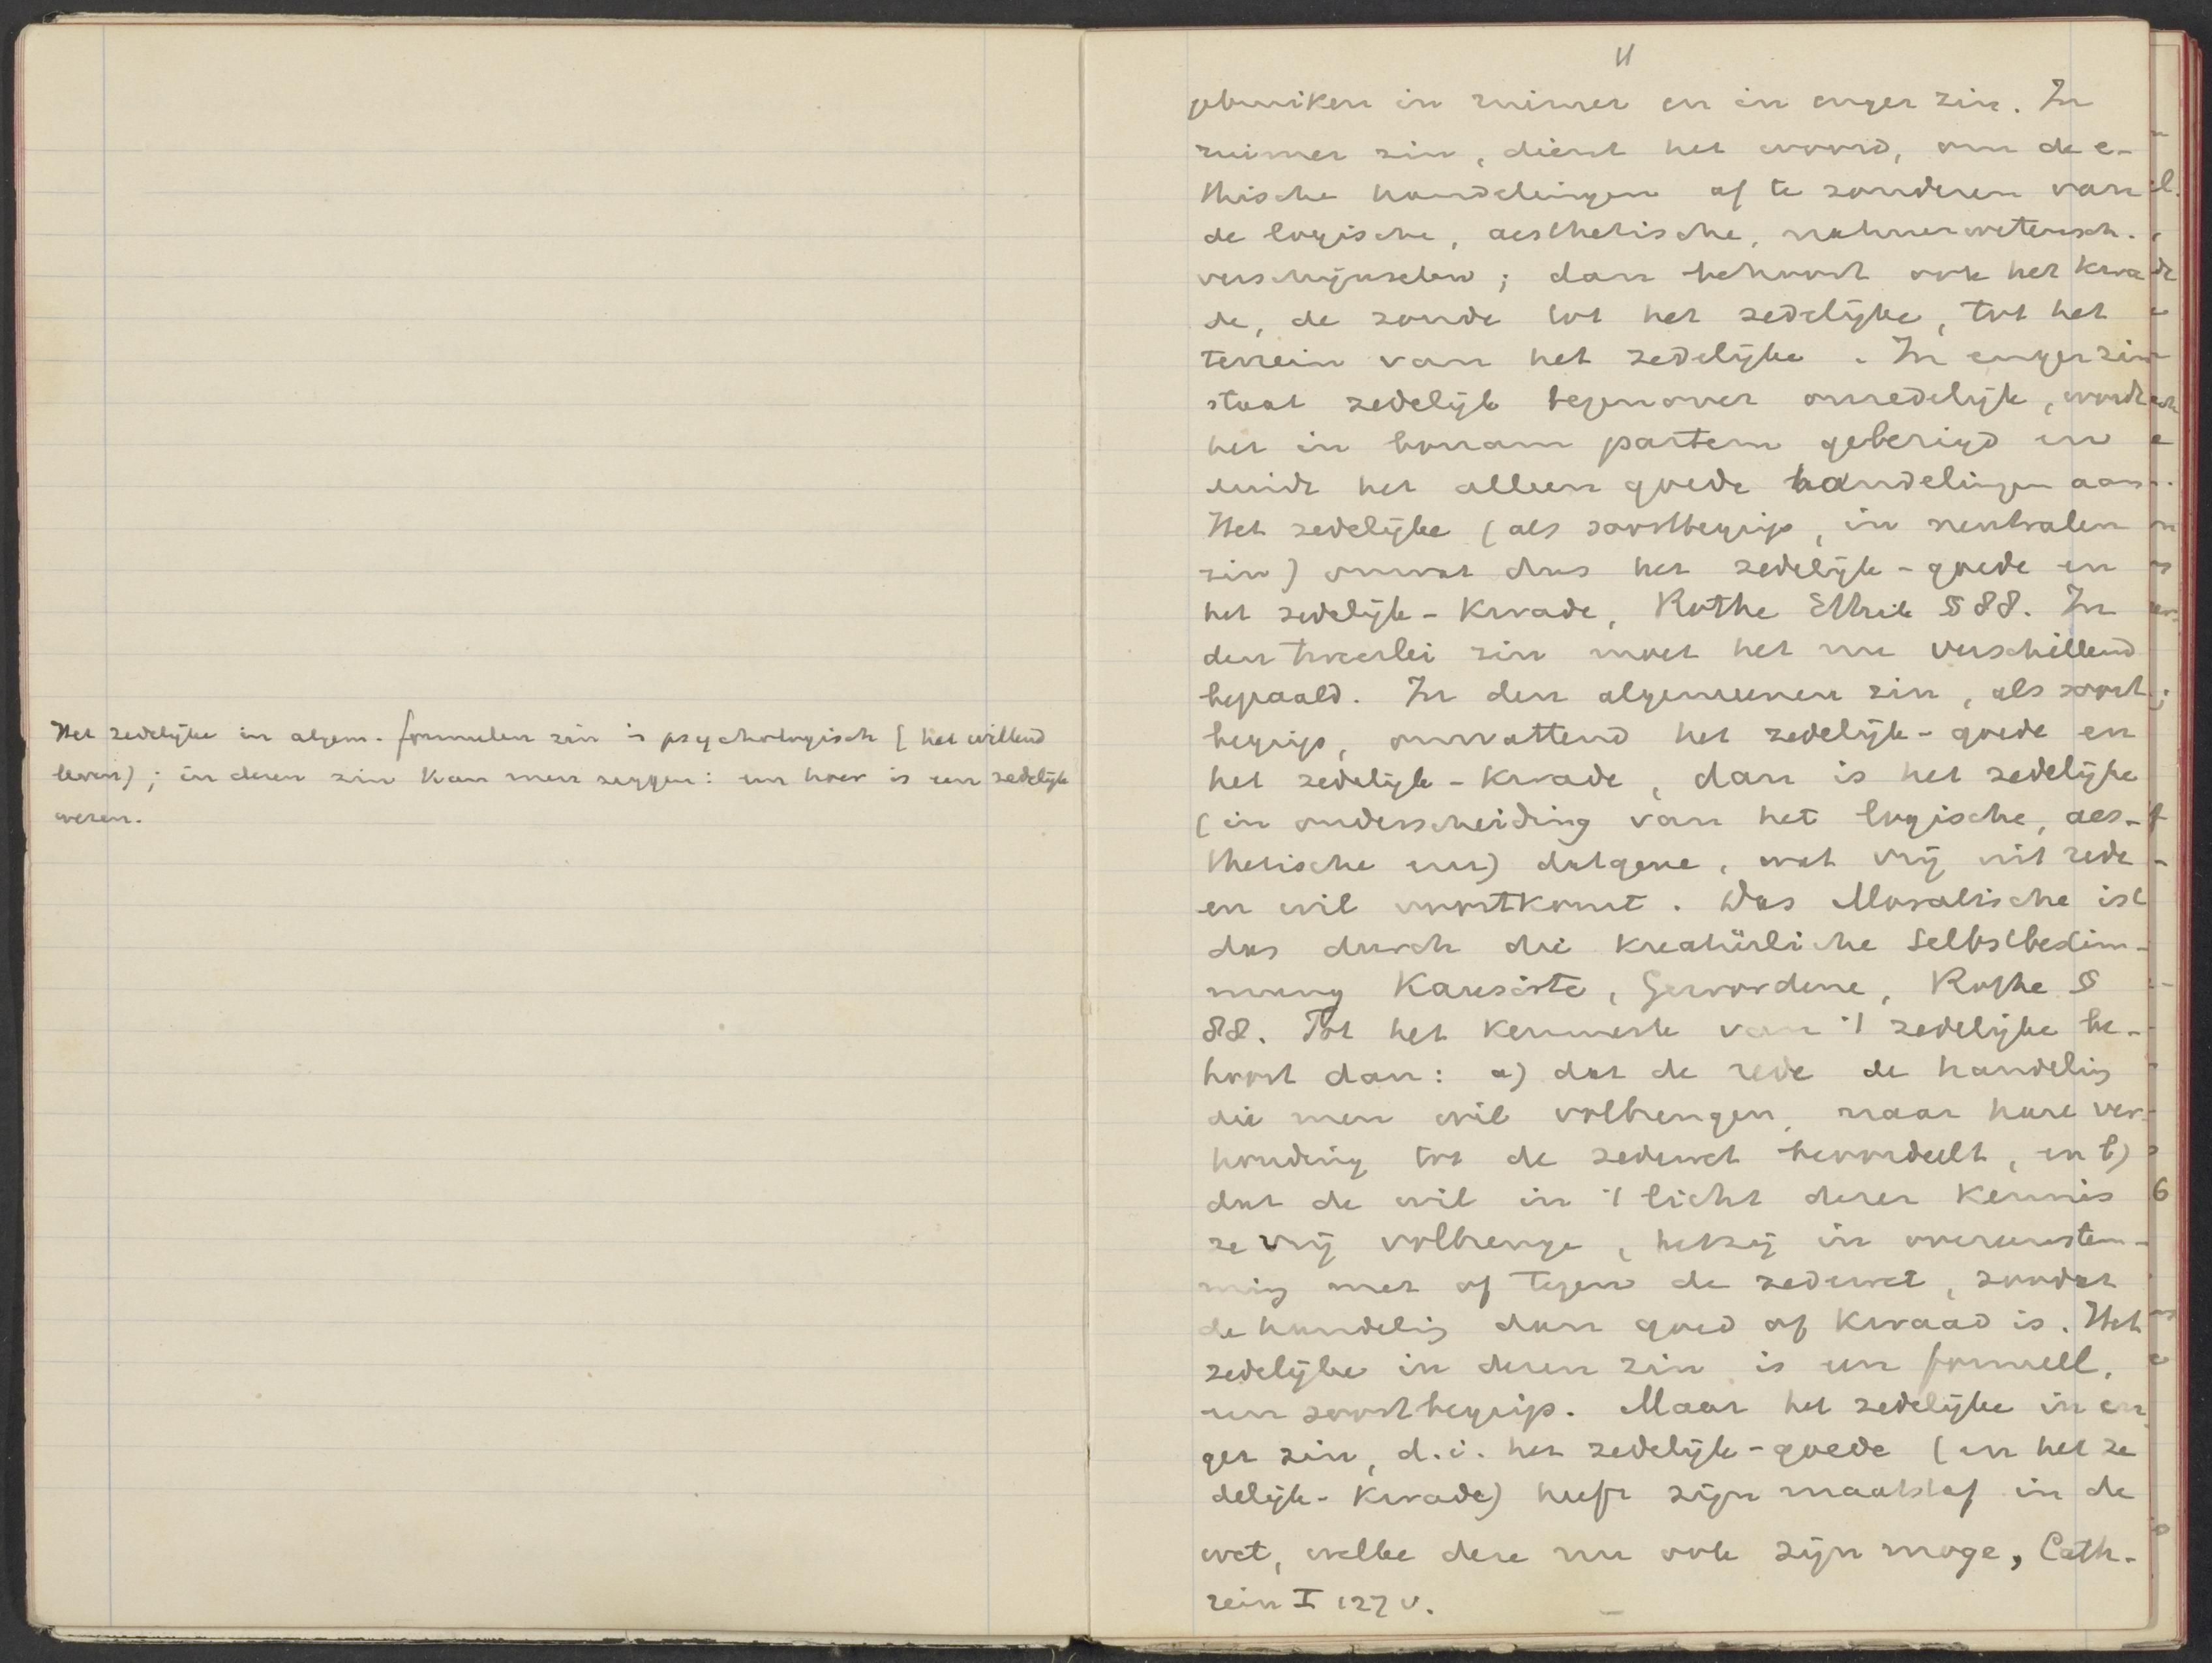 Het zedelijke in algem. formeelen zin is psychologisch (het willend
leven); in dezen zin kan men zeggen: een hoer is een zedelijk
wezen.
11
gebruiken in ruimer en in enger zin. In
ruimer zin, dient het woord, om de e-
thische handelingen af te zonderen van
de logische, aesthetische, natuurwetensch.
verschijnselen; dan behoort ook het kwa
de, de zonde tot het zedelijke, tot het
terrein van het zedelijke. In enger zin
staat zedelijk tegenover onzedelijk, wordt
het in bonam partem gebezigd en
duidt het alleen goede handelingen aan.
Het zedelijke (als soortbegrip, in neutralen
zin) omvat dus het zedelijk-goede en
het zedelijk-kwade, Rothe Ethik § 88. In
den tweeërlei zin moet het nu verschillend
bepaald. In den algemeenen zin, als soort
begrip, omvattend het zedelijk-goede en
het zedelijk-kwade, dan is het zedelijke
(in onderscheiding van het logische, aes-
thetische enz) datgene, wat vrij uit rede
en wil voortkomt. Das Moralische ist
das durch die kreatürliche Selbstbestim-
mung Kausirte, Gewordene, Rothe §
88. Tot het kenmerk van 't zedelijke be-
hoort dan: a) dat de rede de handeling
die men wil volbrengen, naar hare ver-
houding tot de zedewet beoordeelt, en b)
dat de wil in 't licht dezer kennis
ze vrij volbrenge, hetzij in overeenstem-
ming met of tegen de zedewet, zoodat
de handeling dan goed of kwaad is. Het
zedelijke in dezen zin is een formeel,
een soortbegrip. Maar het zedelijke in en
ger zin, d.i. het zedelijk-goede (en het ze
delijk-kwade) heeft zijn maatstaf in de
wet, welke deze nu ook zijn moge, Cath-
rein I 127 v.